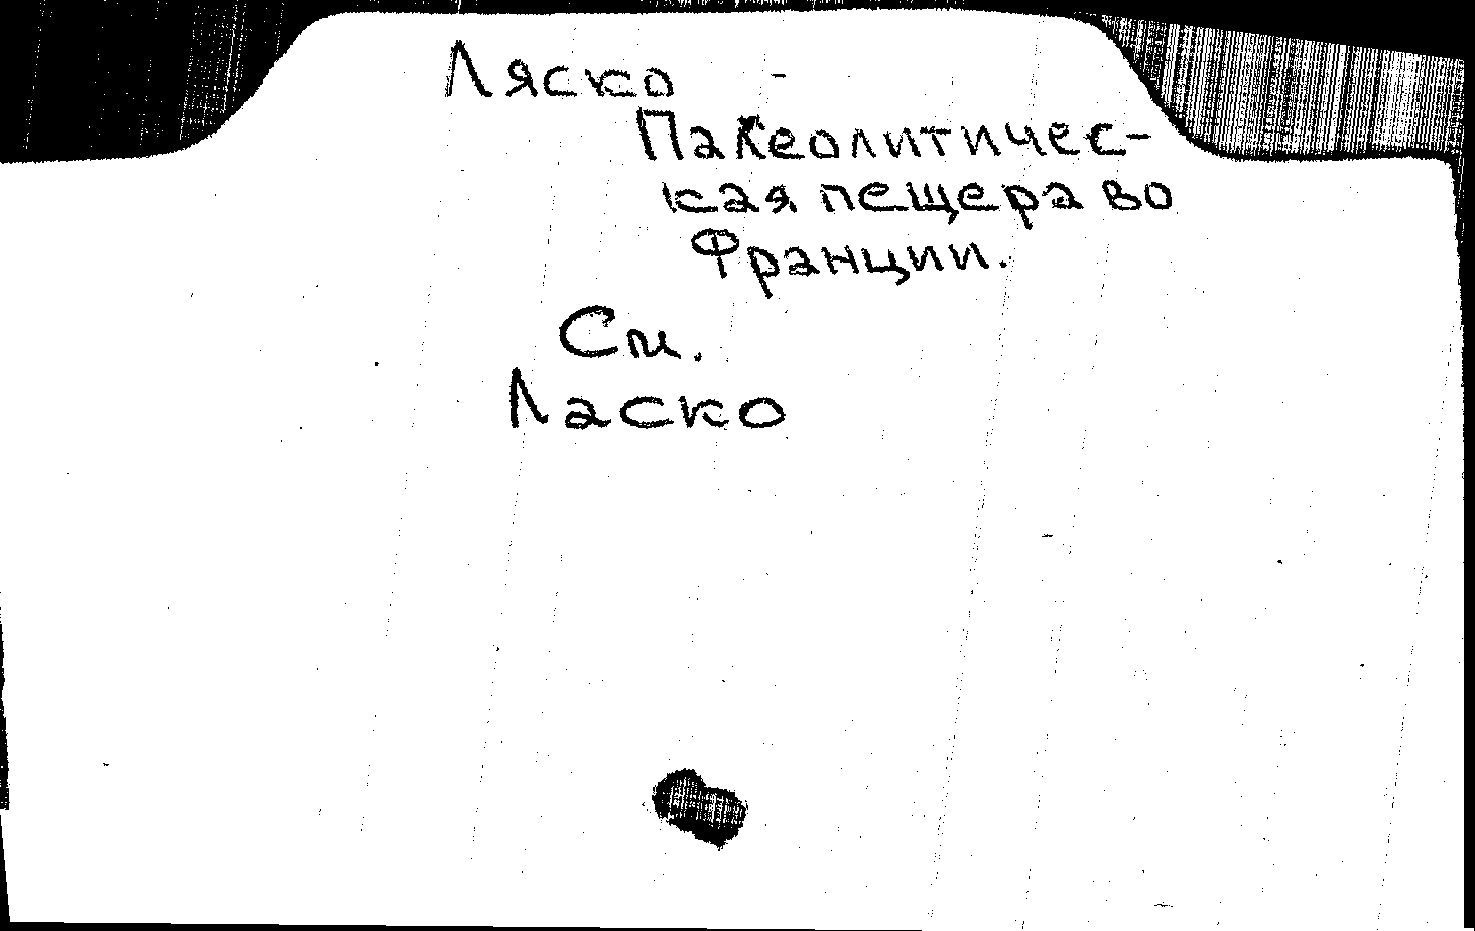 Ляско -
Палеолитичес-
кая пещера во
Франции.
См.
Ласко